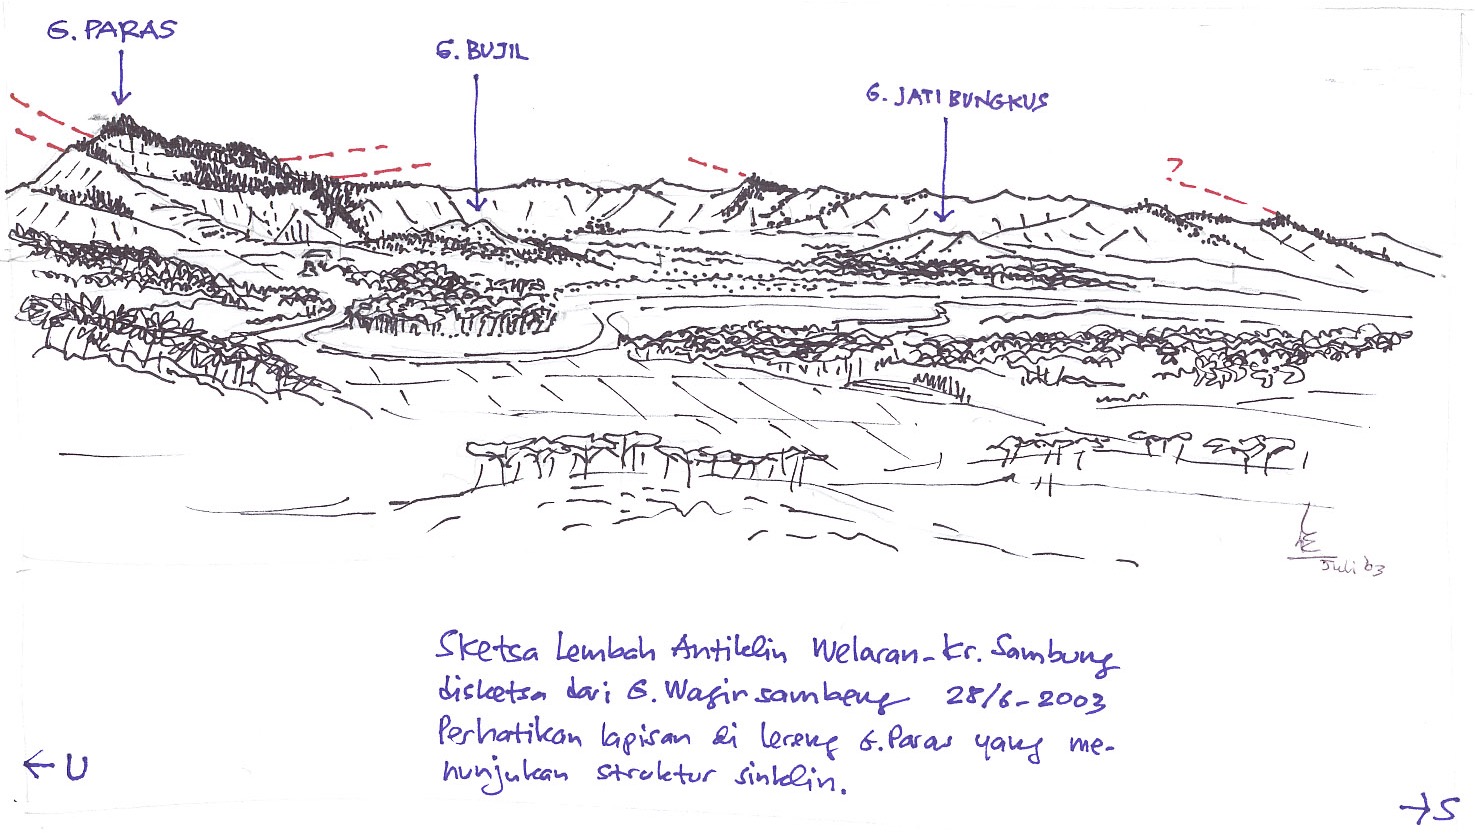 G. PARAS
G. BUJIL
G. JATIBUNGKUS
?
Juli '03
Sketsa Lembah Antiklin Welaran-Kr. Sambung
disketsa dari G. Wagirsambeng 28/6-2003
Perhatikan lapisan di lereng G. Paras yang me-
nunjukan struktur sinklin.
← U
→ S